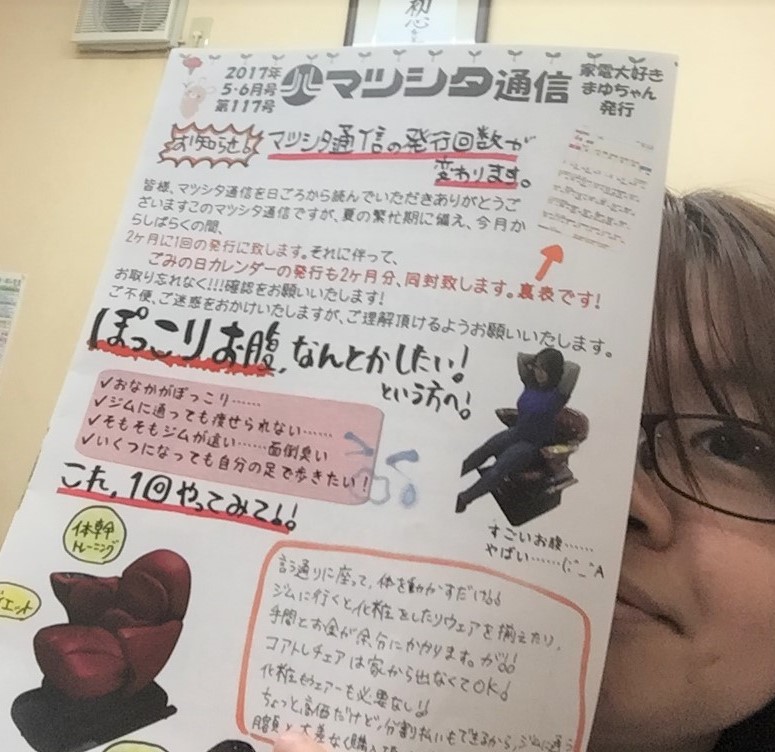 初心
2017年
5・6月号
第117号
マツシタ通信
家電大好き
まゆちゃん
発行
お知らせ!
マツシタ通信の発行回数が
変わります。
皆様、マツシタ通信を日ごろから読んでいただきありがとうご
ざいますこのマツシタ通信ですが、夏の繁忙期に備え、今月か
らしばらくの間、
2ヶ月に1回の発行に致します。それに伴って、
ごみの日カレンダーの発行も2ヶ月分、同封致します。裏表です!
お取り忘れなく!!!確認をお願いいたします!
ご不便、ご迷惑をおかけいたしますが、ご理解頂けるようお願いいたします。
ぽっこりお腹、なんとかしたい!
という方へ!
✓おなかがぽっこり……
✓ジムに通っても痩せられない……
✓そもそもジムが遠い……面倒臭い
✓いくつになっても自分の足で歩きたい!
すごいお腹……
やばい……(;^_^A
これ、1回やってみて!!
体幹
トレーニング
エット
言う通りに座って、体を動かすだけ!!
ジムに行くと化粧をしたりウェアを揃えたり、
手間とお金が余分にかかります。が!!
コアトレチェアは家から出なくてOK!
化粧もウェアーも必要なし!!
ちょっと高価だけど、分割払いもできるから、ジムに通う
大差なく購入